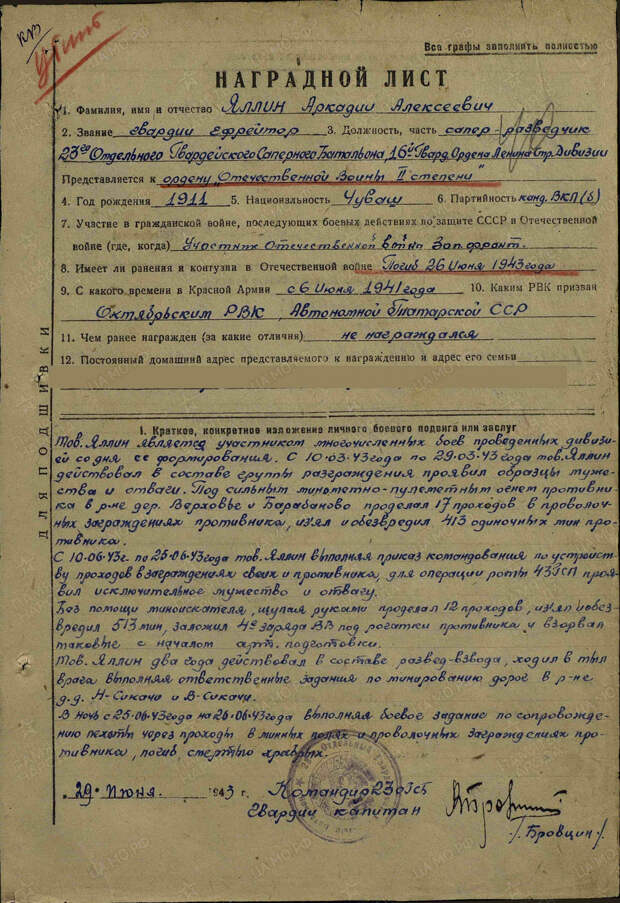 КУЗ
убит
Все графы заполнить полностью
НАГРАДНОЙ ЛИСТ
1. Фамилия, имя и отчество Яллин Аркадий Алексеевич
2. Звание гвардии ефрейтор 3. Должность, часть сапер-разведчик
23го Отдельного Гвардейского Саперного Батальона, 16й Гвард. Ордена Ленина Стр. Дивизии
Представляется к ордену „Отечественной Войны II степени"
4. Год рождения 1911 5. Национальность Чуваш 6. Партийность канд. ВКП(б)
7. Участие в гражданской войне, последующих боевых действиях по защите СССР и Отечественной
войне (где, когда) Участник Отечественной войны Зап. фронт.
8. Имеет ли ранения и контузии в Отечественной войне Погиб 26 Июня 1943 года
9. С какого времени в Красной Армии с 6 Июня 1941 года 10. Каким РВК призван
Октябрьским РВК, Автономной Татарской ССР
11. Чем ранее награжден (за какие отличия) не награждался
12. Постоянный домашний адрес представляемого к награждению и адрес его семьи
ДЛЯ ПОДШИВКИ
I. Краткое, конкретное изложение личного боевого подвига или заслуг
Тов. Яллин является участником многочисленных боев проведенных дивизи-
ей со дня ее формирования. С 10-03-43 года по 29-03-43 года тов. Яллин
действовал в составе группы разграждения проявил образцы муже-
ства и отваги. Под сильным минометно-пулеметным огнем противни-
ка в р-не дер. Верховье и Барабаново проделал 17 проходов в проволоч-
ных заграждениях противника, из'ял и обезвредил 413 одиночных мин про-
тивника.
С 10-06-43г. по 25-06-43 года тов. Яллин выполняя приказ командования по устройст-
ву проходов в заграждениях своих и противника, для операции роты 43 ГСП проя-
вил исключительное мужество и отвагу.
Без помощи миноискателя, щупая руками проделал 12 проходов, из'ял и обез-
вредил 513 мин, заложил 4е заряда ВВ под рогатки противника и взорвал
таковые с началом арт. подготовки.
Тов. Яллин два года действовал в составе развед-взвода, ходил в тыл
врага выполняя ответственные задания по минированию дорог в р-не
д.д. Н-Сикачи и В-Сикачи.
В ночь с 25-06-43 года на 26-06-43 года выполняя боевое задание по сопровожде-
нию пехоты через проходы в минных полях и проволочных заграждениях про-
тивника, погиб смертью храбрых.
29 Июня 1943 г. Командир 23 ОГСБ
Гвардии капитан
/Бровцин/